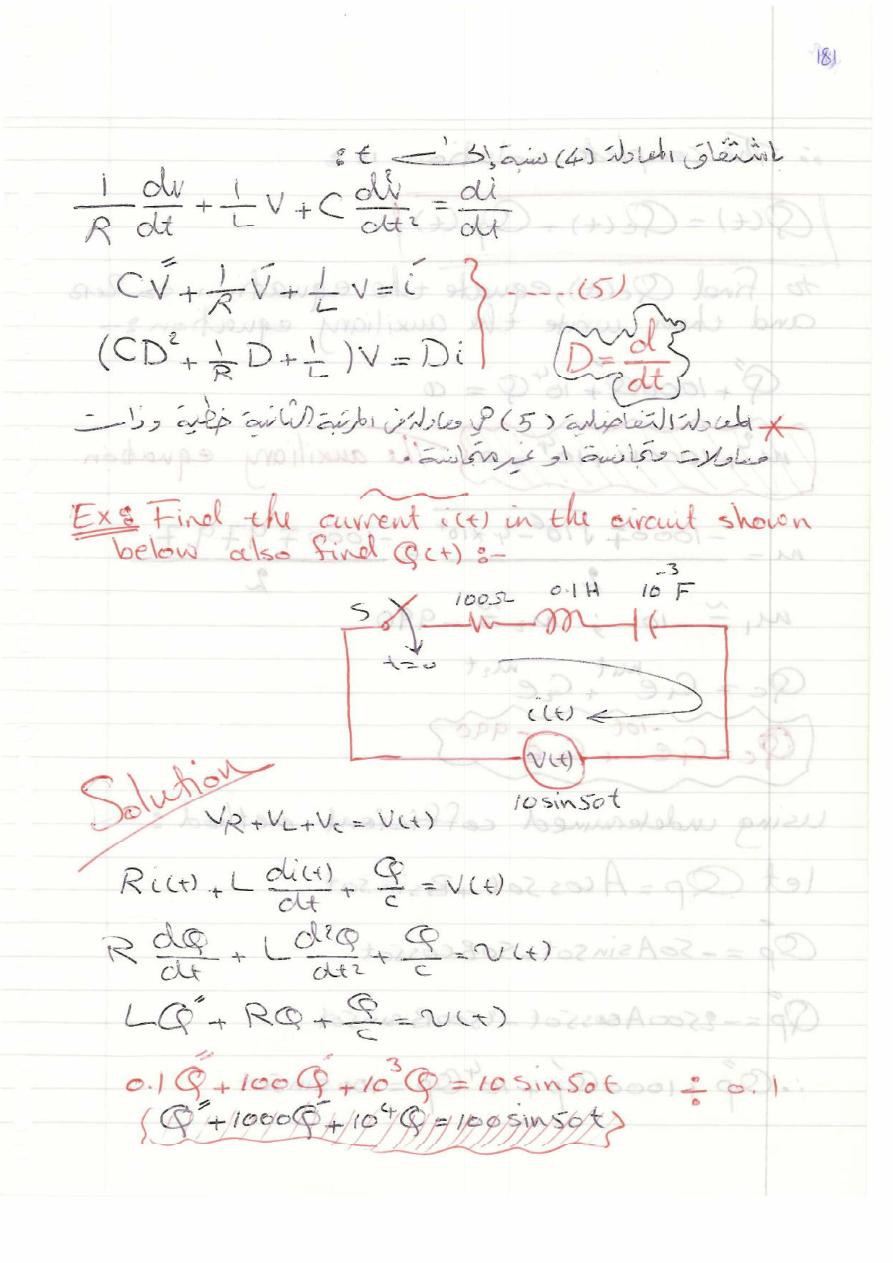 181
باشتقاق المعادلة (4) نسبة إلى t :
1/R dv/dt + 1/L V + C d²v/dt² = di/dt
CV″ + 1/R V′ + 1/L V = i′ } ----- (5)
(CD² + 1/R D + 1/L) V = Di
D = d/dt
× المعادلة التفاضلية (5) هي معادلة من المرتبة الثانية خطية وذات
معاملات متجانسة او غير متجانسة.
Ex: Find the current i(t) in the circuit shown
below also find Q(t) :-
S 100Ω 0.1H 10⁻³F
t=0
i(t)
V(t)
10sin50t
Solution
VR + VL + Vc = V(t)
Ri(t) + L di(t)/dt + Q/c = V(t)
R dQ/dt + L d²Q/dt² + Q/c = v(t)
LQ″ + RQ + Q/c = v(t)
0.1Q″ + 100Q′ + 10³Q = 10sin50t ÷ 0.1
{ Q″ + 1000Q′ + 10⁴Q = 100sin50t }